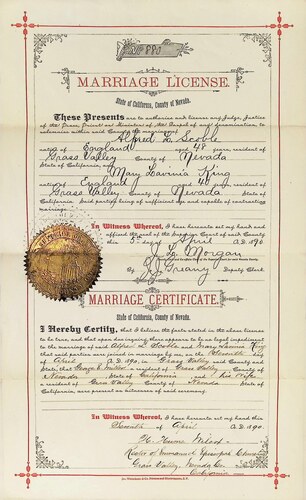 MARRIAGE LICENSE
State of California, County of Nevada.
These Presents are to authorize and license any Judge, Justice
of the Peace, Priest or Minister of the Gospel of any denomination, to
solemnize within said County the marriage of
Alfred L. Scoble
native of England aged 48 years, resident of
Grass Valley County of Nevada
State of California, and
Mary Lavinia King
native of England aged 40 years, resident of
Grass Valley County of Nevada State of
California. Said parties being of sufficient age and capable of contracting
marriage.
In Witness Whereof, I have hereunto set my hand and
affixed the seal of the Superior Court of said County
this 5th day of April A.D. 1890
Morgan
Deputy Clerk
MARRIAGE CERTIFICATE.
State of California, County of Nevada.
I Hereby Certify, that I believe the facts stated in the above license
to be true, and that upon due inquiry there appears to be no legal impediment
to the marriage of said Alfred L. Scoble and Mary Lavinia King
that said parties were joined in marriage by me, on the
day of April A.D. 1890, in Grass Valley said County
and State; that George
a resident of Grass Valley County of
Nevada State of California and
a resident of Grass Valley County of Nevada State of
California are present as witnesses of said ceremony.
In Witness Whereof, I have hereunto set my hand this
Seventh of April A.D. 1890.
Rector of Emmanuel Episcopal Church
Grass Valley, Nevada Co.
California